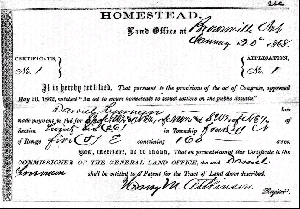 HOMESTEAD.
Land Office at Brownville Neb
January 20th 1868.
CERTIFICATE,
No. 1
APPLICATION,
No. 1
It is hereby certified, That pursuant to the provisions of the act of Congress, approved
May 20, 1862, entitled "An act to secure homesteads to actual settlers on the public domain,"
Daniel Freeman has
made payment in full for of
Section Twenty six (26) in Township Four (4) N
of Range five (5) E containing 160 acres.
Now, therefore, be it known, That on presentation of this Certificate to the
COMMISSIONER OF THE GENERAL LAND OFFICE, the said Daniel
Freeman shall be entitled to a Patent for the Tract of Land above described.
Henry M. Atkinson
Register.